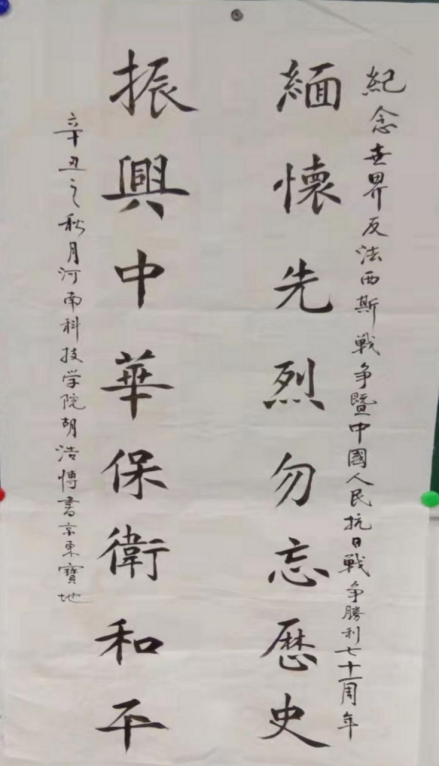 紀念世界反法西斯戰争暨中國人民抗日戰争勝利七十一周年
緬懷先烈勿忘歷史
振興中華保衛和平
辛丑之秋月河南科技学院胡浩博書京東寶地